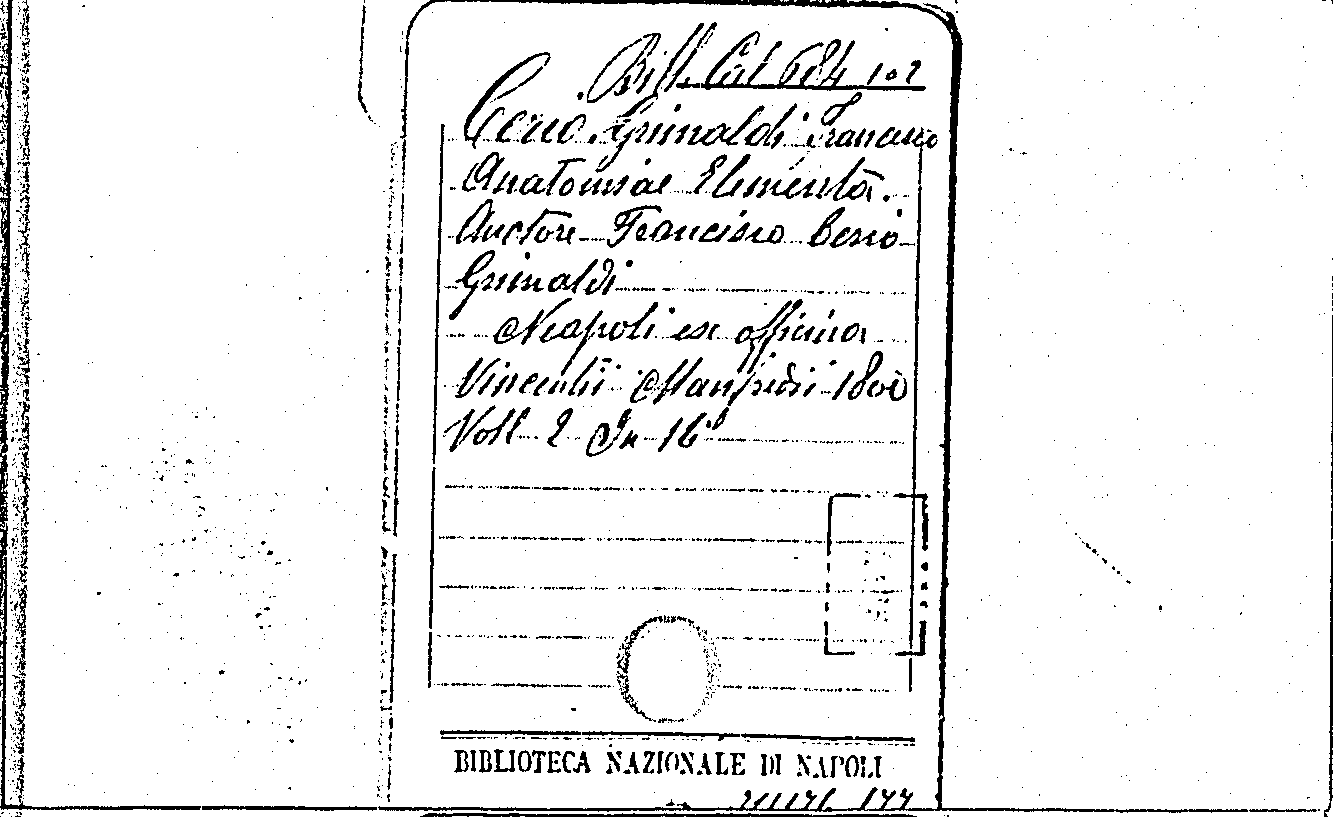 Bibl. Cat 684 1-2
Cerio Grimaldi Francesco
Anatomiae Elementa.
Auctore Francisco Cerio
Grimaldi
Neapoli ex officina
Vincentii Manfredi 1800
Voll 2 In 16°
BIBLIOTECA NAZIONALE DI NAPOLI